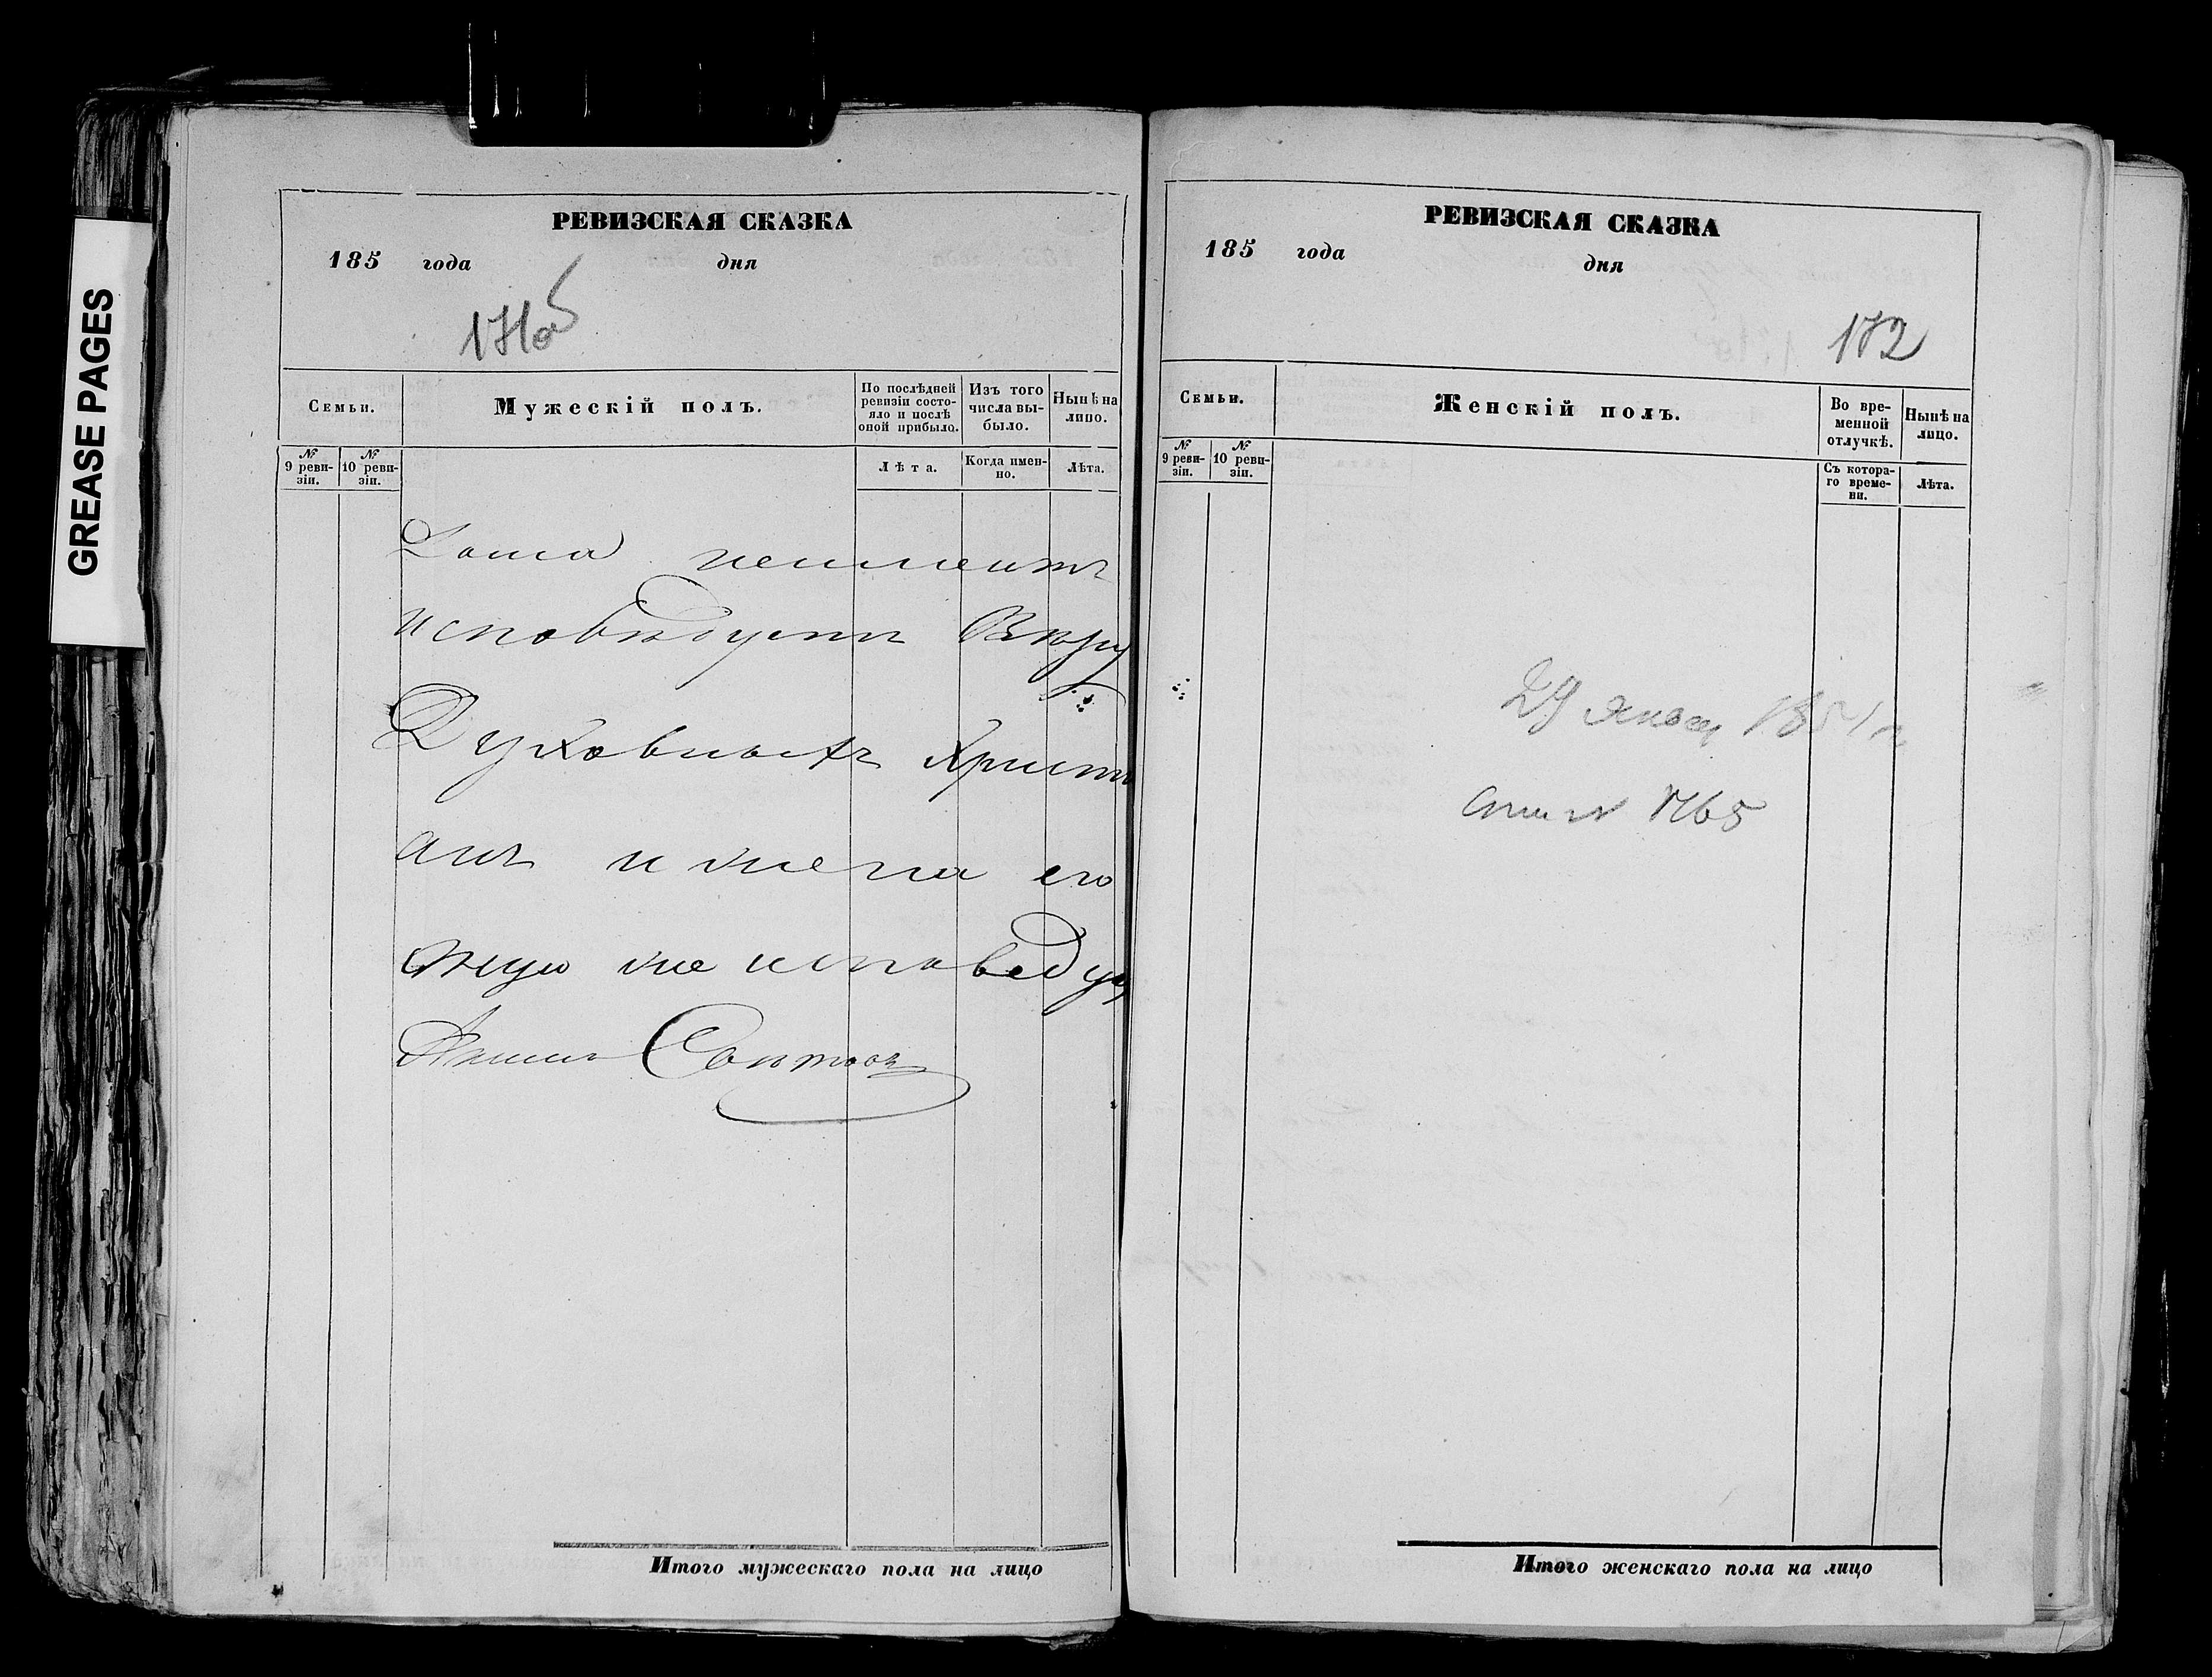 GREASE PAGES
РЕВИЗСКАЯ СКАЗКА
185 года дня
171об
Семьи.
Мужескій полъ.
По послѣдней ревизіи состо-
яло и послѣ
оной прибыло.
Изъ того
числа вы-
было.
Нынѣ на
лицо.
№
9 реви-
зіи.
№
10 реви-
зіи.
Лѣта.
Когда имен-
но.
Лѣта.
неимеитъ
исповѣдуетъ Вѣру
Духовныхъ Христи
анъ и жена его
тую же исповеду
Итого мужескаго пола на лицо
РЕВИЗСКАЯ СКАЗКА
185 года дня
172
Семьи.
Женскій полъ.
Во вре-
менной
отлучкѣ.
Нынѣ на
лицо.
№
9 реви-
зіи.
№
10 реви-
зіи.
Съ котора-
го време-
ни.
Лѣта.
29 1851
1765
Итого женскаго пола на лицо